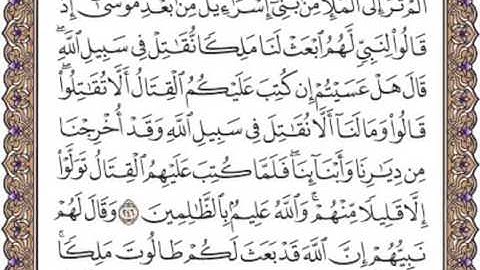 أَلَمْ تَرَ إِلَى ٱلْمَلَإِ مِنۢ بَنِىٓ إِسْرَٰٓءِيلَ مِنۢ بَعْدِ مُوسَىٰٓ إِذْ
قَالُوا۟ لِنَبِىٍّ لَّهُمُ ٱبْعَثْ لَنَا مَلِكًا نُّقَٰتِلْ فِى سَبِيلِ ٱللَّهِ ۖ
قَالَ هَلْ عَسَيْتُمْ إِن كُتِبَ عَلَيْكُمُ ٱلْقِتَالُ أَلَّا تُقَٰتِلُوا۟ ۖ
قَالُوا۟ وَمَا لَنَآ أَلَّا نُقَٰتِلَ فِى سَبِيلِ ٱللَّهِ وَقَدْ أُخْرِجْنَا
مِن دِيَٰرِنَا وَأَبْنَآئِنَا ۖ فَلَمَّا كُتِبَ عَلَيْهِمُ ٱلْقِتَالُ تَوَلَّوْا۟
إِلَّا قَلِيلًا مِّنْهُمْ ۗ وَٱللَّهُ عَلِيمٌۢ بِٱلظَّٰلِمِينَ ٢٤٦ وَقَالَ لَهُمْ
نَبِيُّهُمْ إِنَّ ٱللَّهَ قَدْ بَعَثَ لَكُمْ طَالُوتَ مَلِكًا ۚ